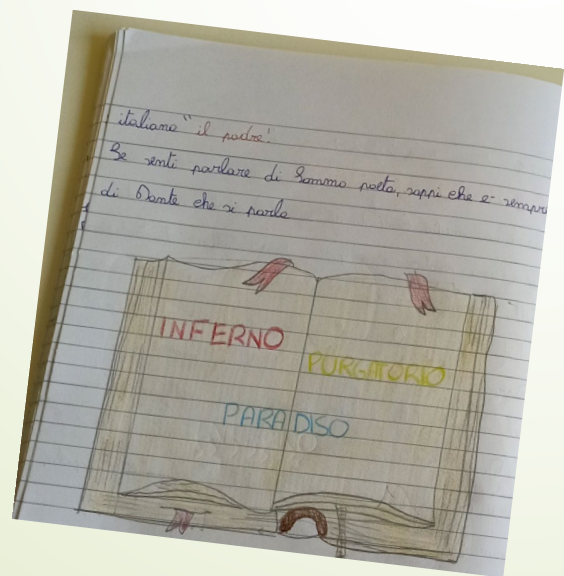 italiano "il padre".
Se senti parlare di Sommo poeta, sappi che è sempre
di Dante che si parla
INFERNO
PURGATORIO
PARADISO